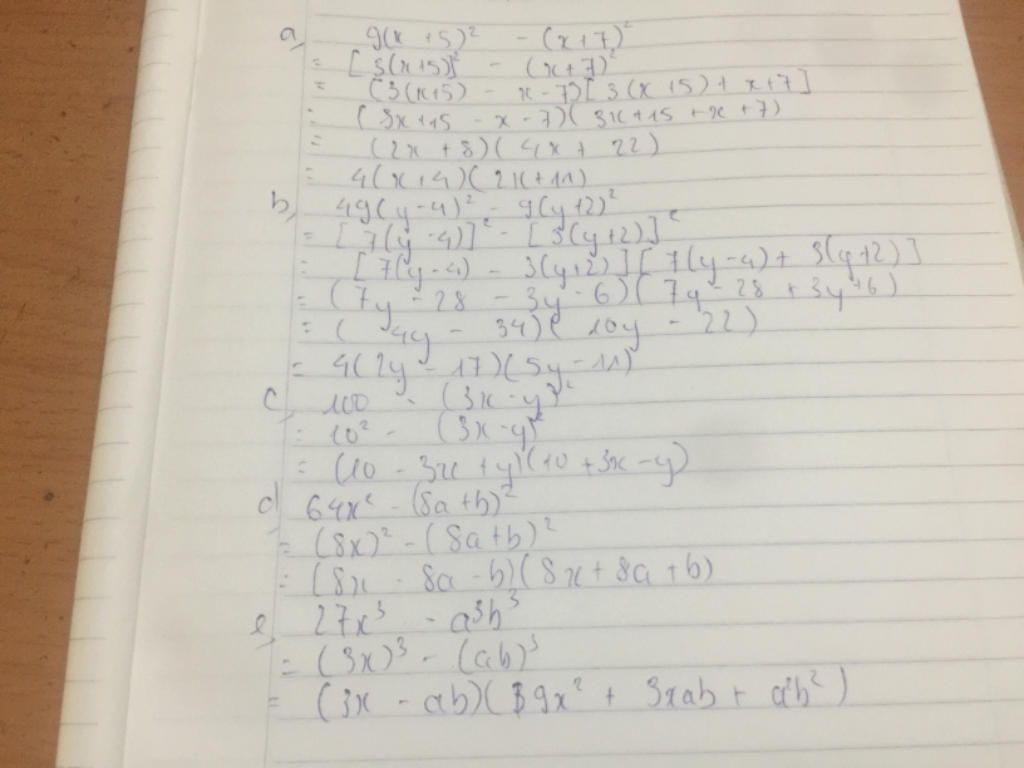 a, 9(x+5)² - (x+7)²
= [3(x+5)]² - (x+7)²
= (3(x+5) - x-7)[3(x+5)+x+7]
= (3x+15-x-7)(3x+15+x+7)
= (2x+8)(4x+22)
= 4(x+4)(2x+11)
b, 49(y-4)² - 9(y+2)²
= [7(y-4)]² - [3(y+2)]²
= [7(y-4) - 3(y+2)][7(y-4)+3(y+2)]
= (7y-28-3y-6)(7y-28+3y+6)
= (4y-34)(10y-22)
= 4(2y-17)(5y-11)
c, 100 - (3x-y)²
= 10² - (3x-y)²
= (10-3x+y)(10+3x-y)
d, 64x² - (8a+b)²
= (8x)² - (8a+b)²
= (8x-8a-b)(8x+8a+b)
e, 27x³ - a³b³
= (3x)³ - (ab)³
= (3x-ab)(9x²+3xab+a²b²)